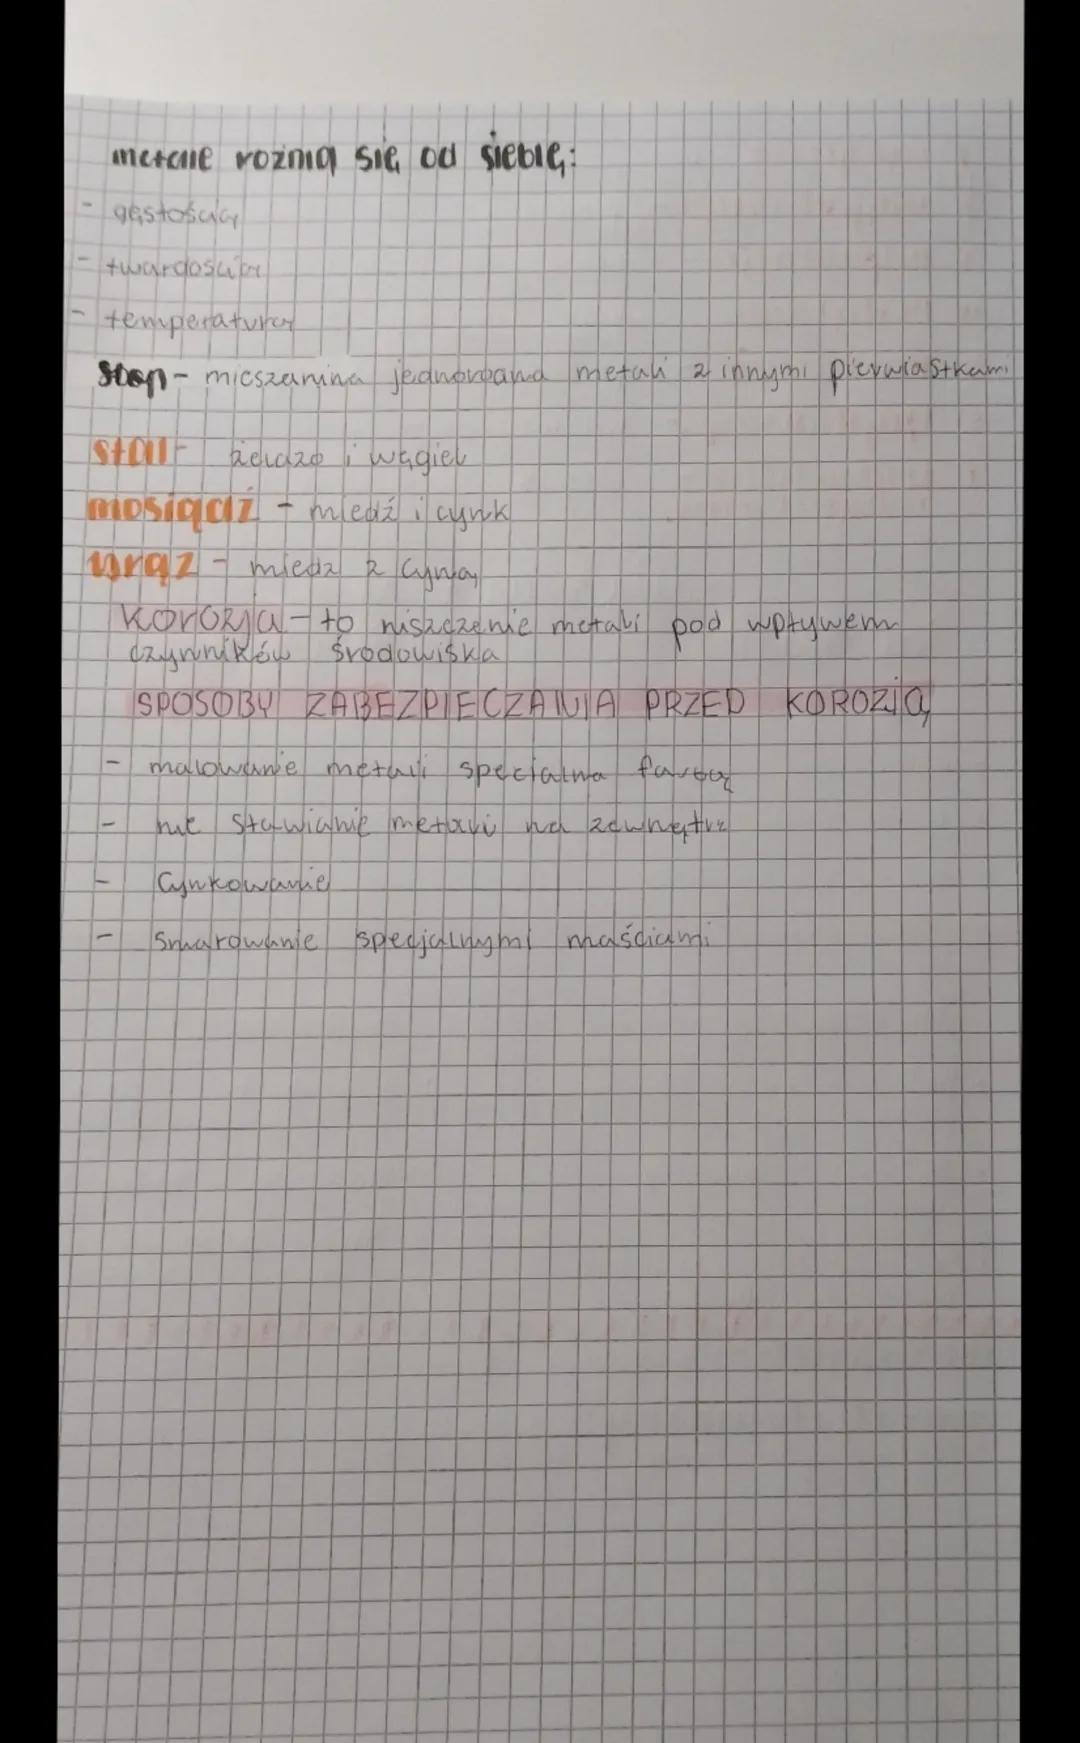 metale rożnią się od siebię:
- gęstością
- twardością
- temperaturą
stop - mieszanina jednorodna metali z innymi pierwiastkami
stal - żelazo i węgiel
mosiądź - miedź i cynk
brąz - miedz z cyną
Korozja - to niszczenie metali pod wpływem
czynników środowiska
SPOSOBY ZABEZPIECZANIA PRZED KOROZJĄ
- malowanie metali specialna farbą
- nie stawianie metali na zewnątrz
- Cynkowanie
- Smarowanie specjalnymi maściami